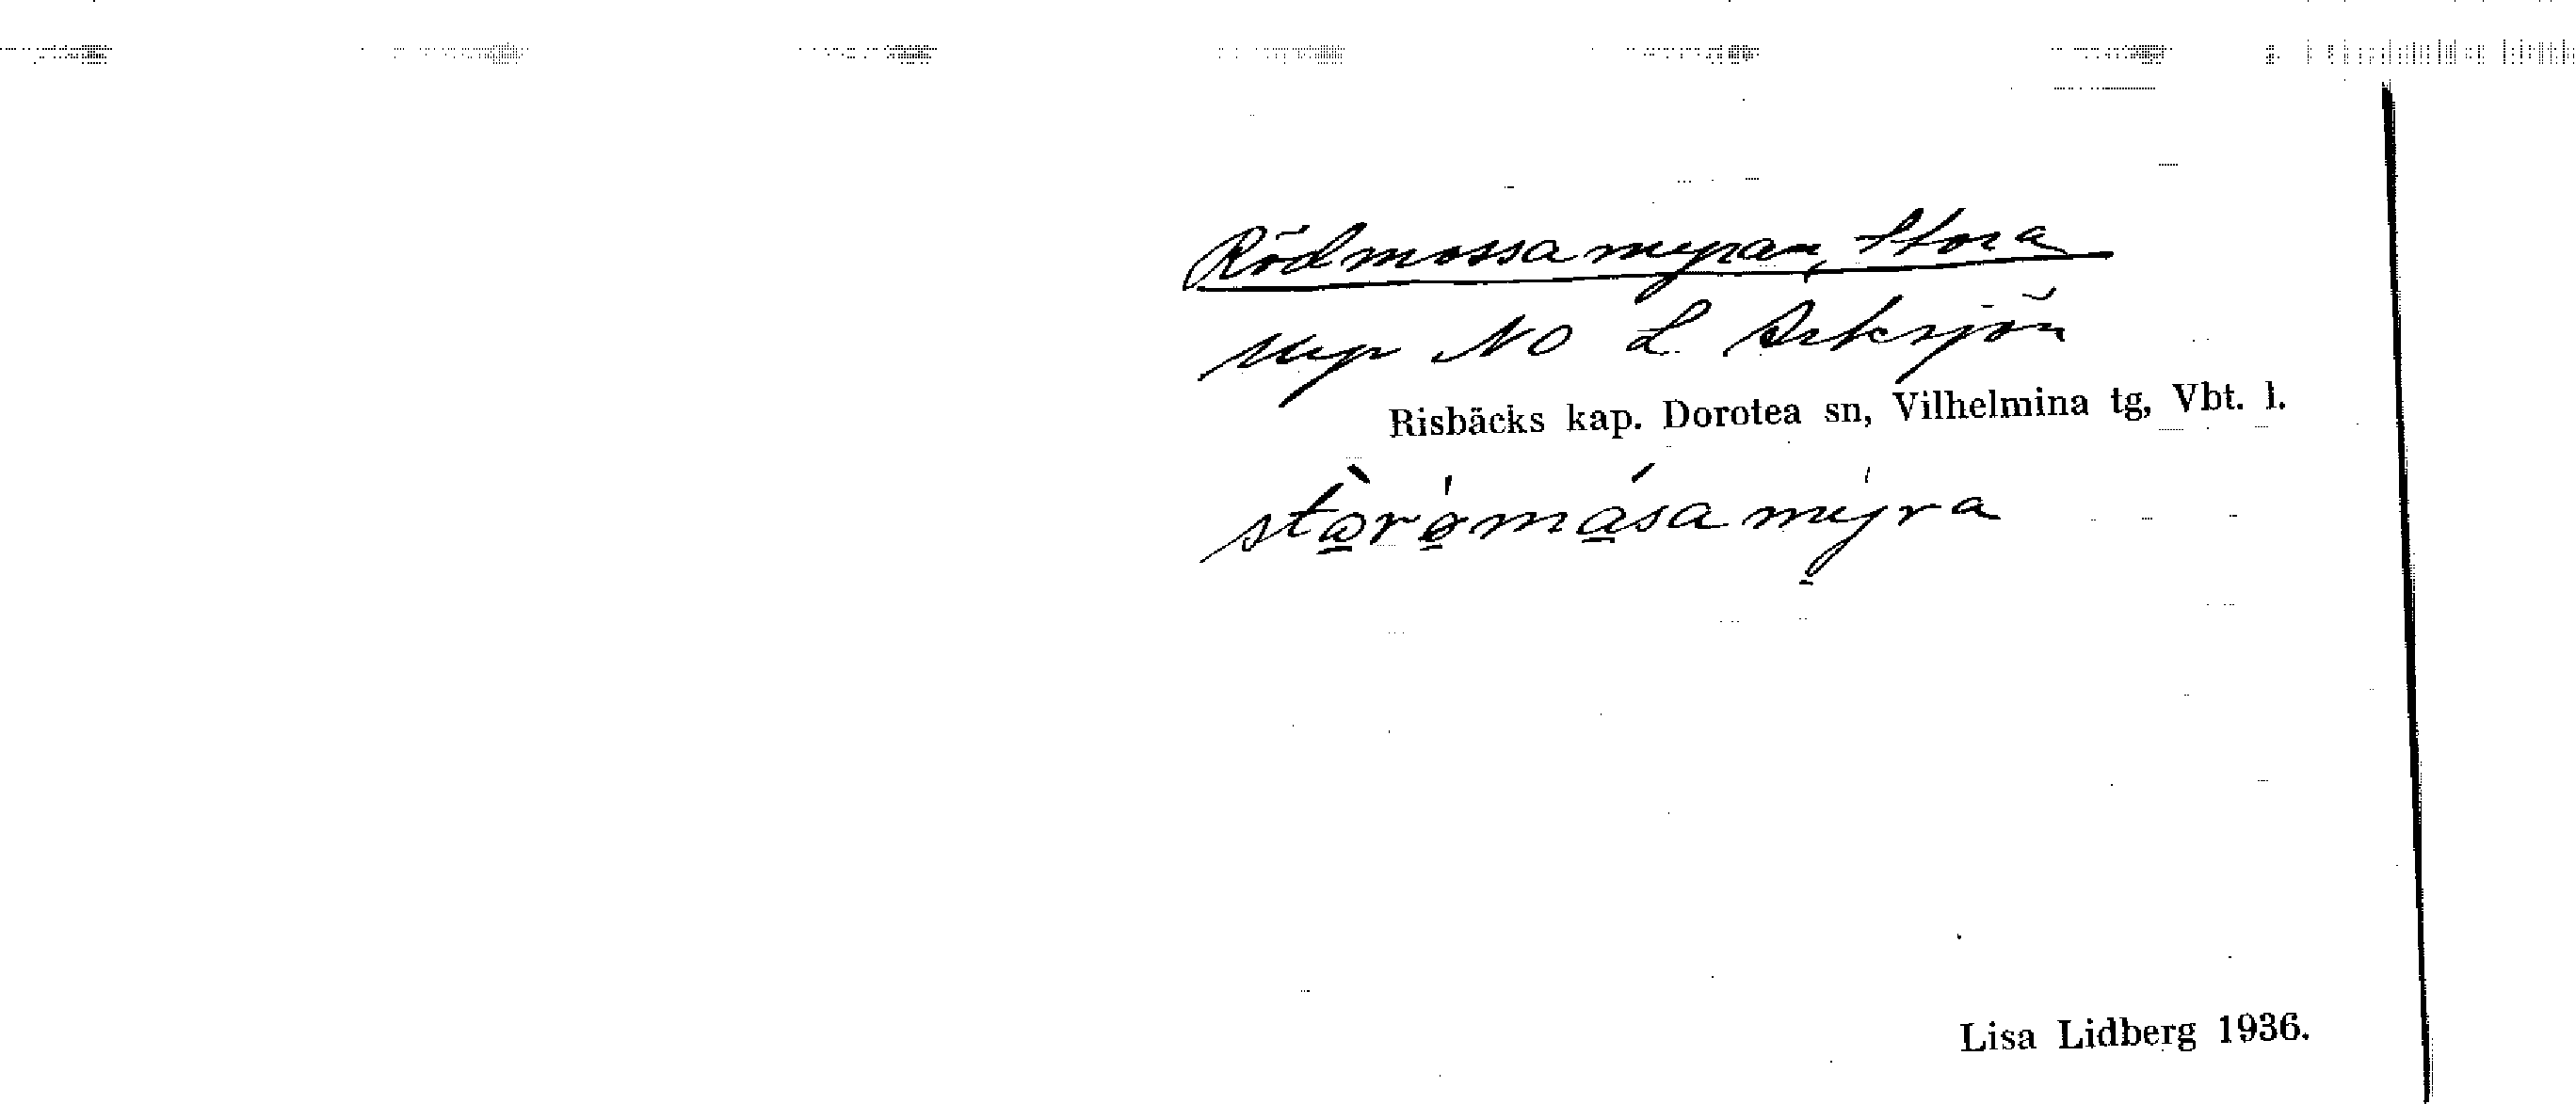 Rödmossamyran, Stora
Myr NO L. Arksjön
Risbäcks kap. Dorotea sn, Vilhelmina tg, Vbt. l.
stạ̀rọ́mạ́samy̠̍ra
Lisa Lidberg 1936.